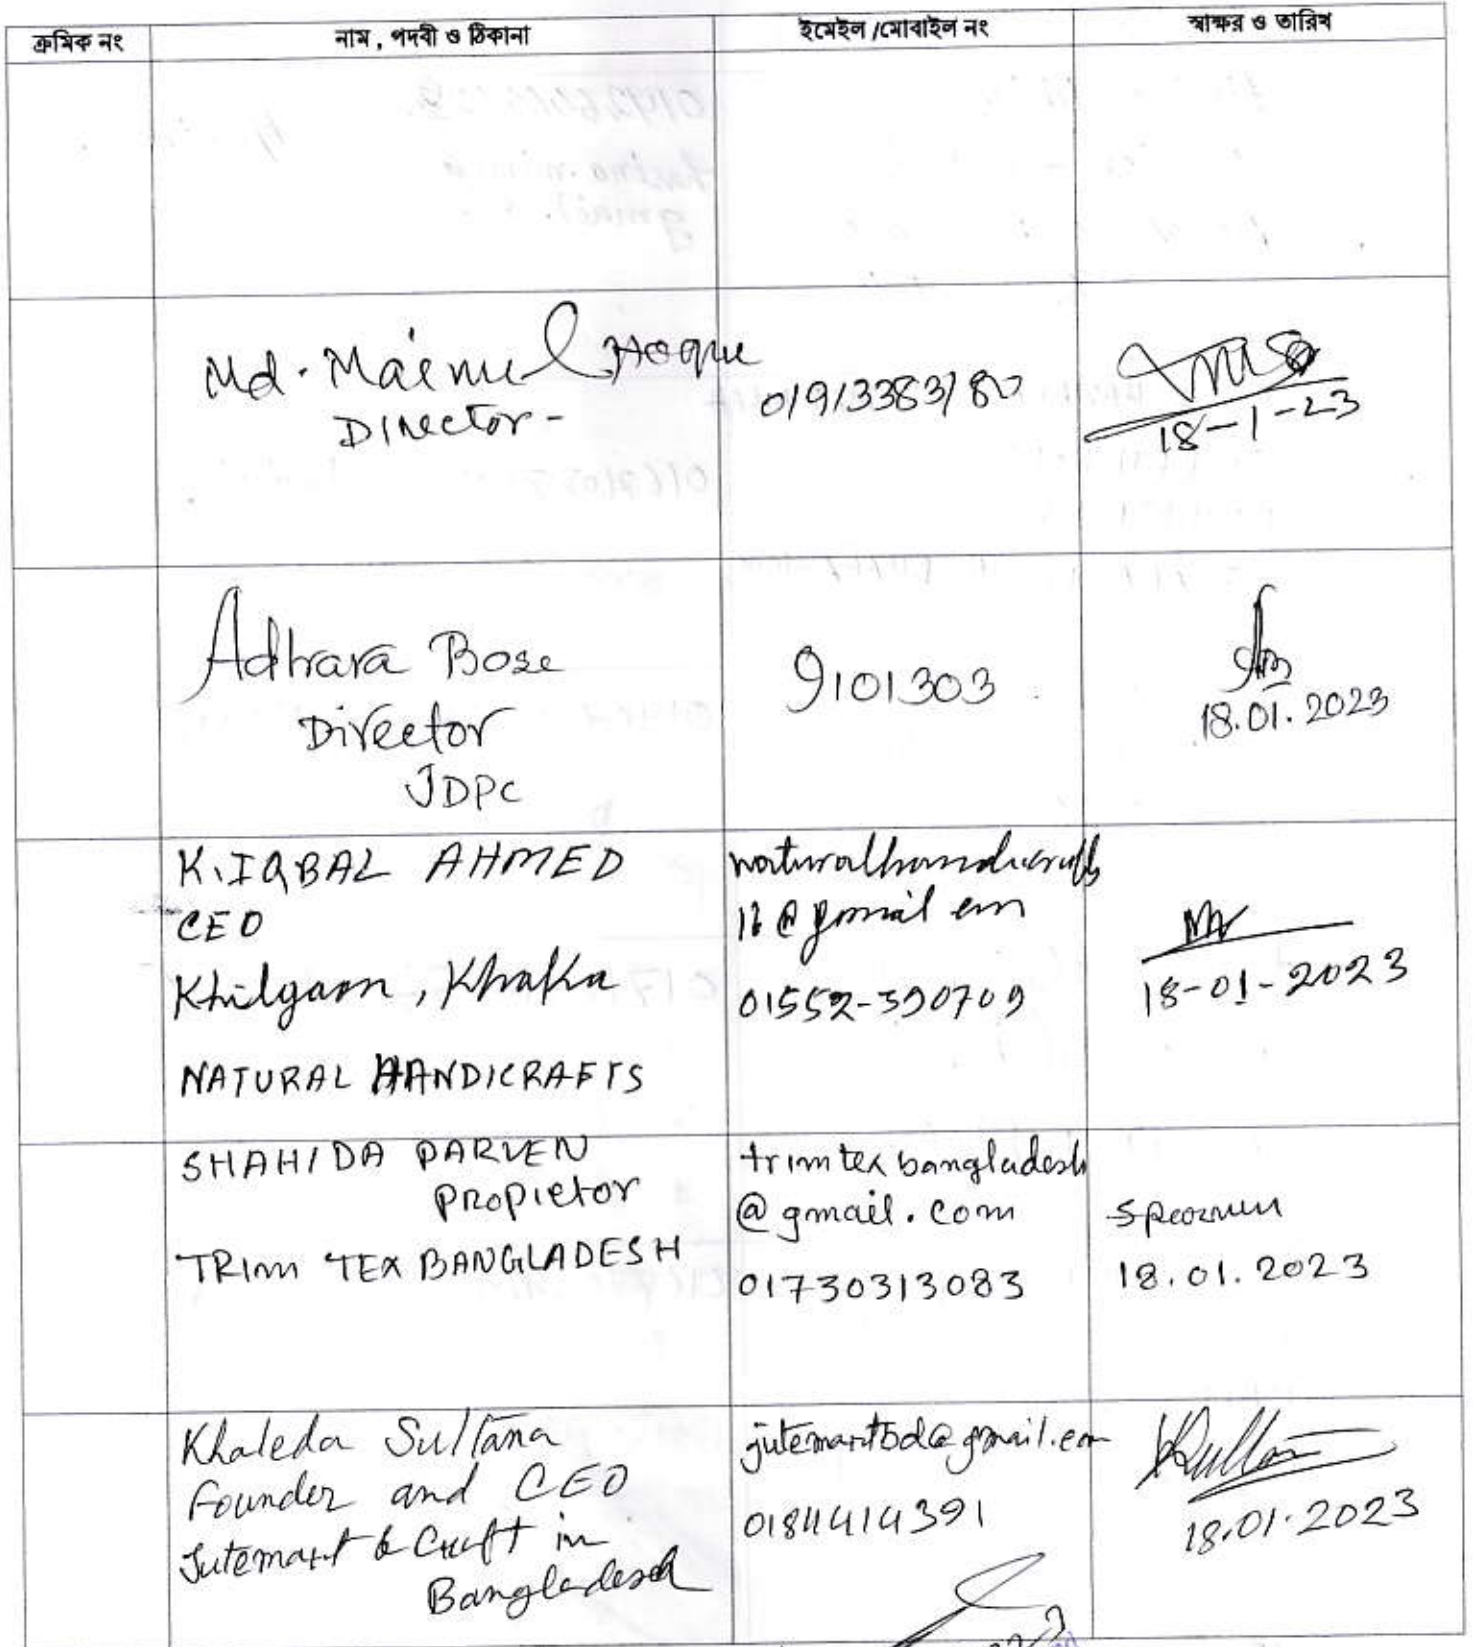 ক্রমিক নং নাম, পদবী ও ঠিকানা ইমেইল /মোবাইল নং স্বাক্ষর ও তারিখ
Md. Mainul Hoque
Director-
01913383180
18-1-23
Adhara Bose
Director
JDPC
9101303
18.01.2023
K. IQBAL AHMED
CEO
Khilgaon, Khaka
NATURAL HANDICRAFTS
naturalhandicrafts
16@gmail com
01552-390709
18-01-2023
SHAHIDA PARVEN
Propietor
TRIM TEX BANGLADESH
trimtexbangladesh
@gmail.com
01730313083
18.01.2023
Khaleda Sultana
Founder and CEO
Jutemart & Craft in
Bangladesh
jutemartbd@gmail.com
01844414391
18.01.2023